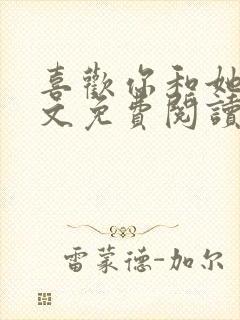 喜歡你和她
文免費閱讀
雷蒙德-加尔